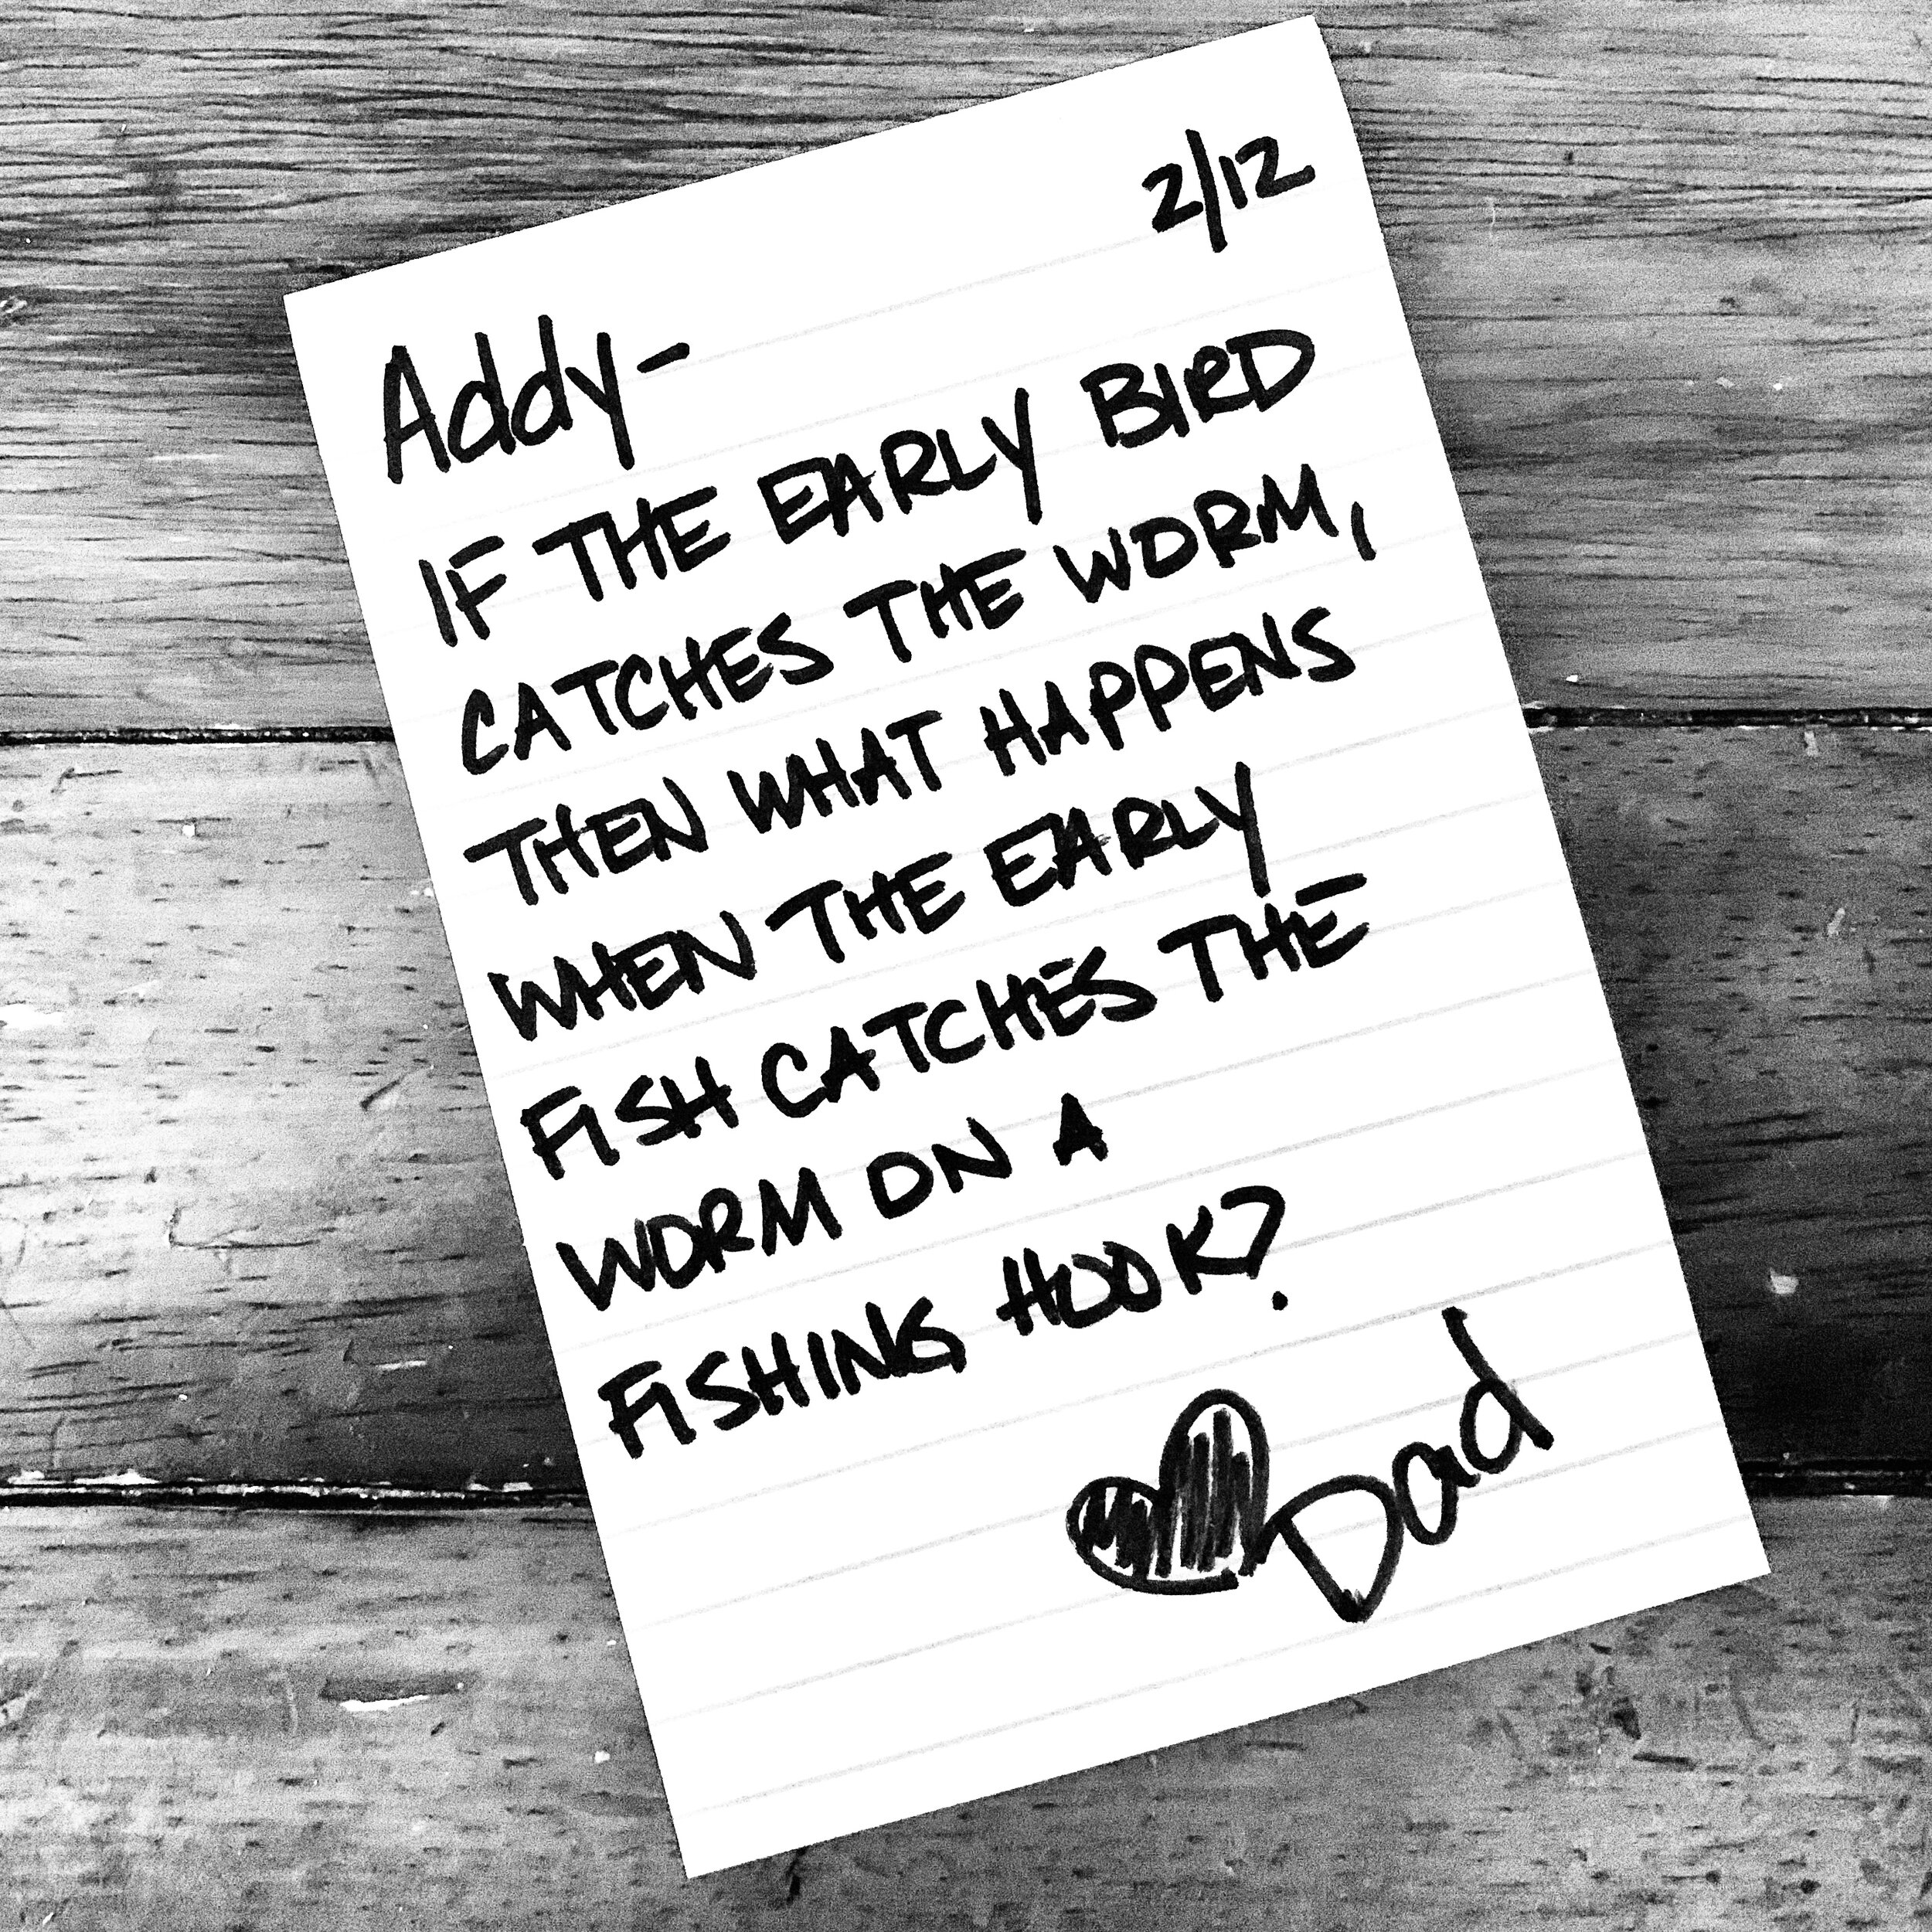 2/12
Addy-
IF THE EARLY BIRD
CATCHES THE WORM,
THEN WHAT HAPPENS
WHEN THE EARLY
FISH CATCHES THE
WORM ON A
FISHING HOOK?
Dad